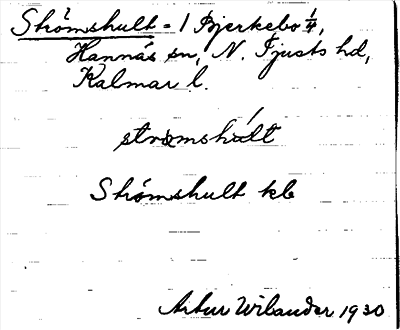 Strömshult = 1 Bjerkebo 1/4,
Hannäs sn, N. Tjusts hd,
Kalmar l.
strømshúlt
Strömshult kb
Artur Wilander 1930